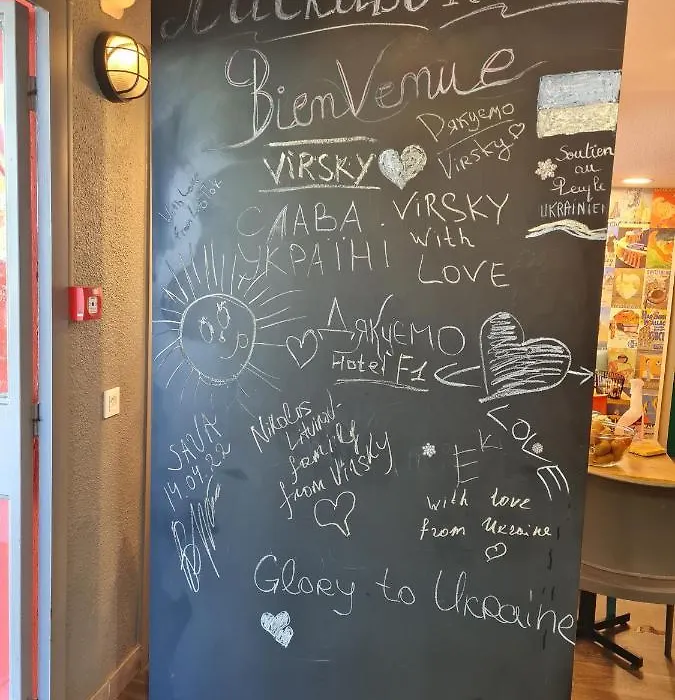 BienVenue
Дякуємо
Virsky
VIRSKY
Soutien
au
Peuple
UKRAINIEN
With Love
СЛАВА
УКРАЇНІ
VIRSKY
with
LOVE
ДЯКУЄМО
Hotel F1
LOVE
SAVA
14.04.22
Nikolas
family
from Virsky
E K
with love
from Ukraine
Glory to Ukraine